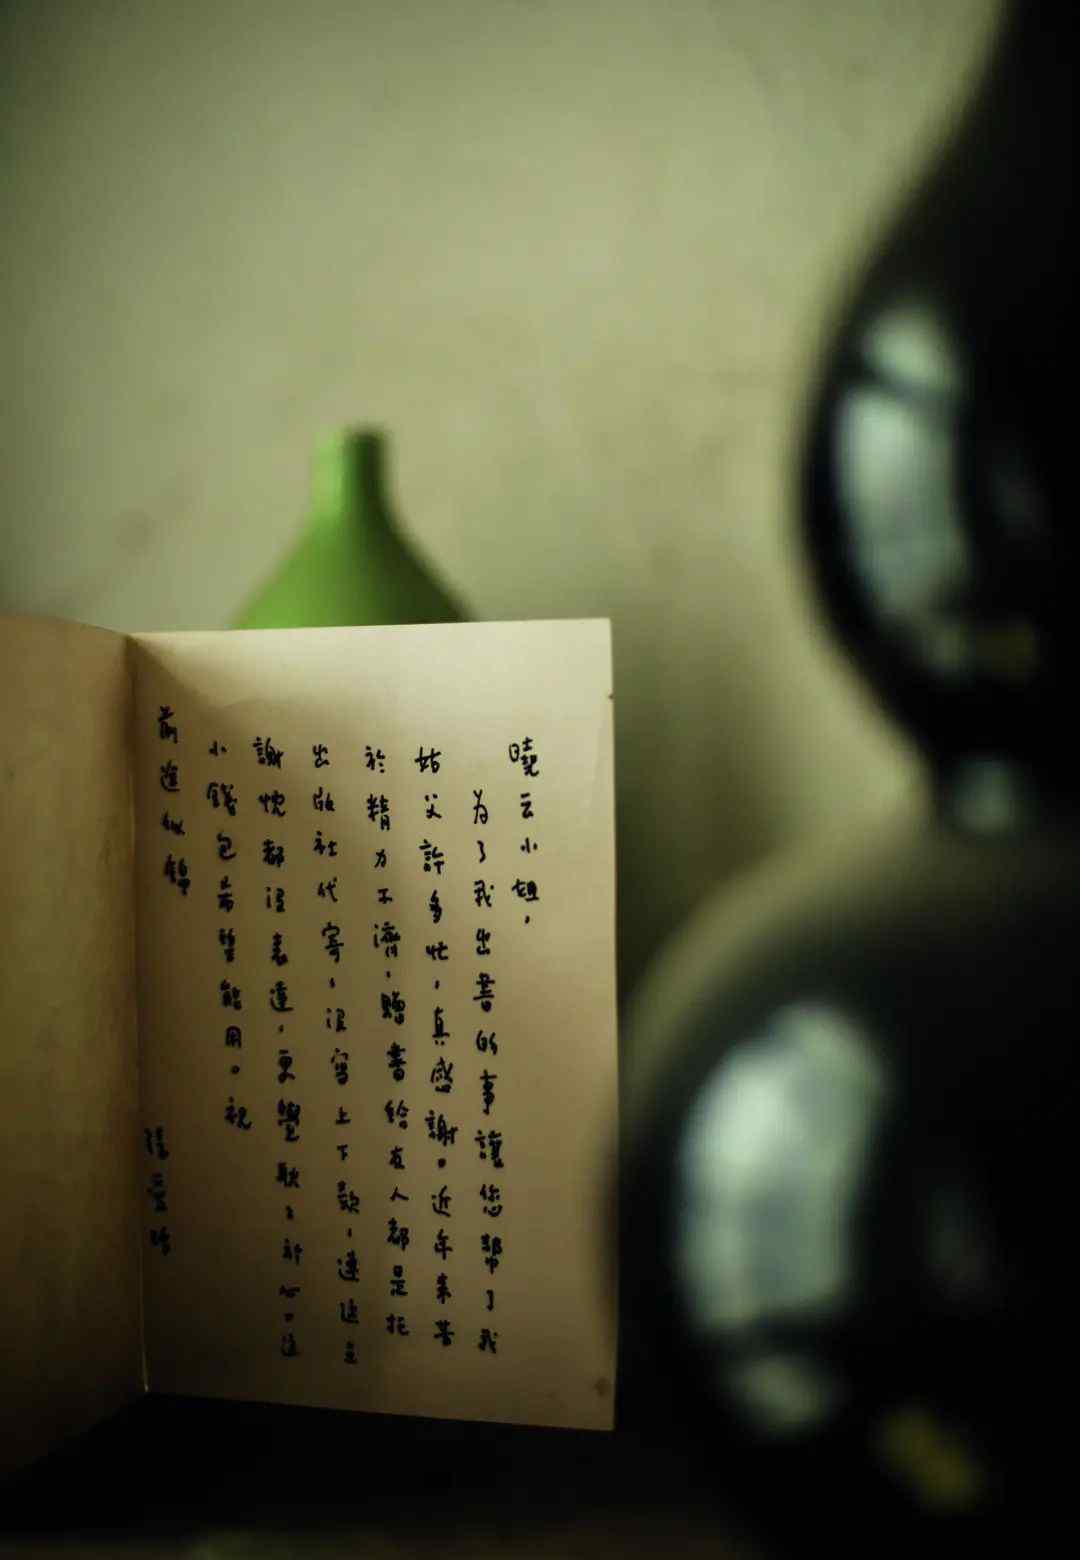 曉云小姐，
为了我出書的事讓您幫了我
姑父許多忙，真感謝。近年來苦
於精力不濟，贈書給友人都是托
出版社代寄，沒寫上下款，連這点
謝忱都沒表達，更覺耿々於心。這
小錢包希望能用。祝
前途似錦
張愛玲